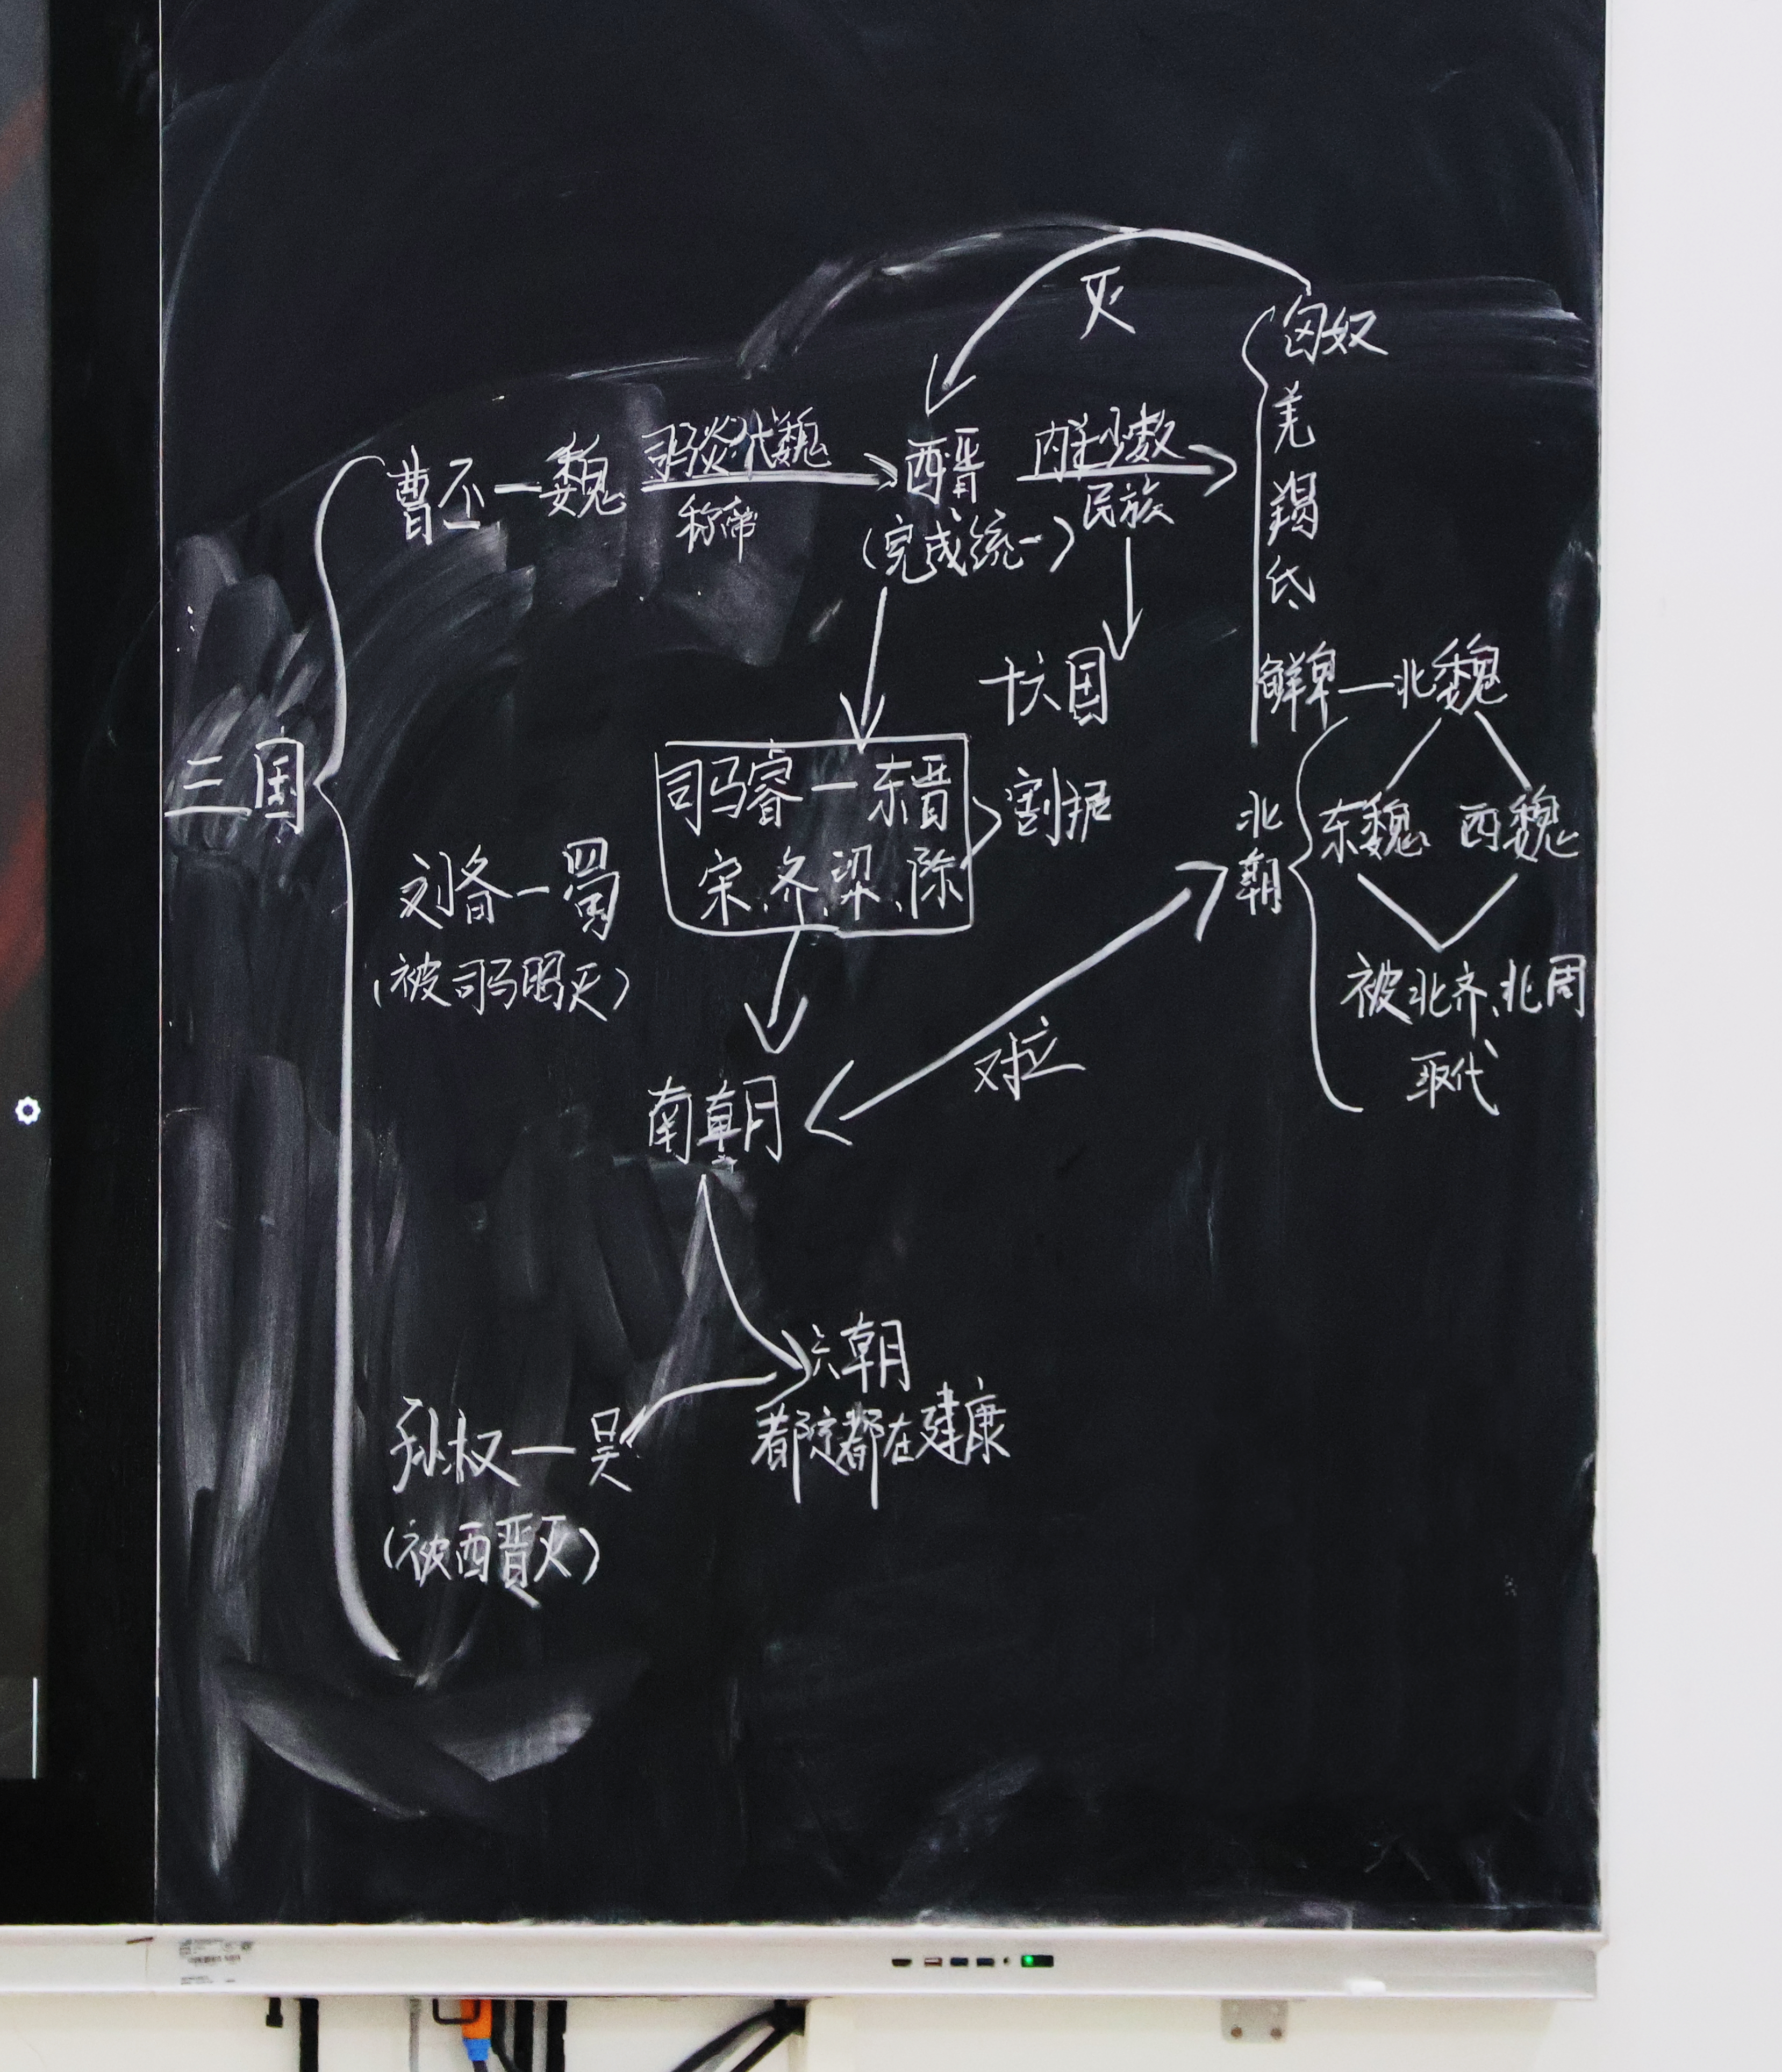 灭
匈奴
羌
羯
氐
鲜卑—北魏
曹丕—魏
司马炎代魏
称帝
西晋
(完成统一)
内迁少数
民族
十六国
割据
三国
司马睿—东晋
宋、齐、梁、陈
北朝
东魏 西魏
被北齐、北周
取代
刘备—蜀
(被司马昭灭)
对立
南朝
六朝
都定都在建康
孙权—吴
(被西晋灭)